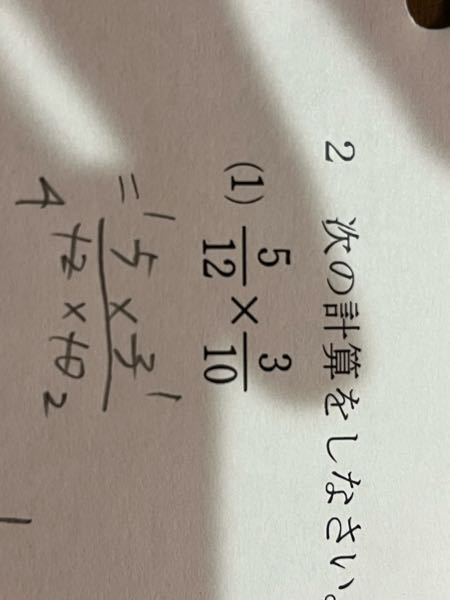 2 次の計算をしなさい。
(1) 5/12 × 3/10
= 5 × 3 / 12 × 10
1 1
4 2